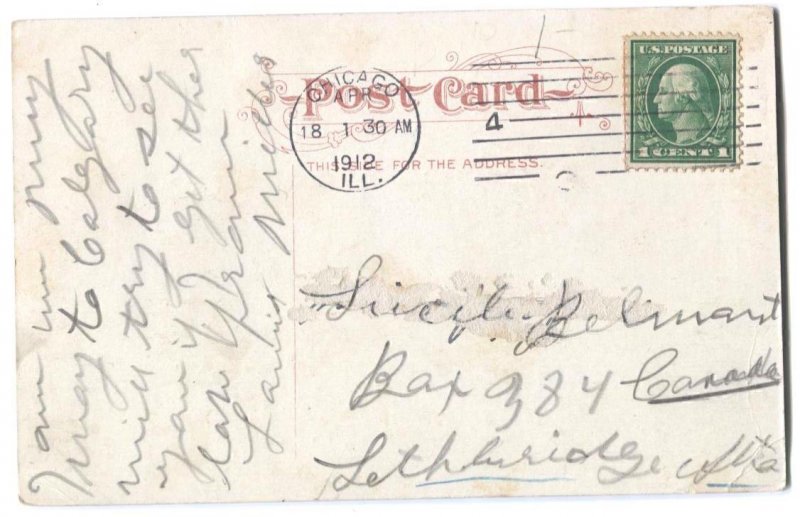 am on my
way to Calgary
will try to see
you if I get ther
CHICAGO
APR
18 1 30 AM
1912
ILL.
4
Post Card
THIS SIDE FOR THE ADDRESS.
U.S. POSTAGE
1 CENT 1
Belmant
Box 984 Canada
Lethbridge Alta